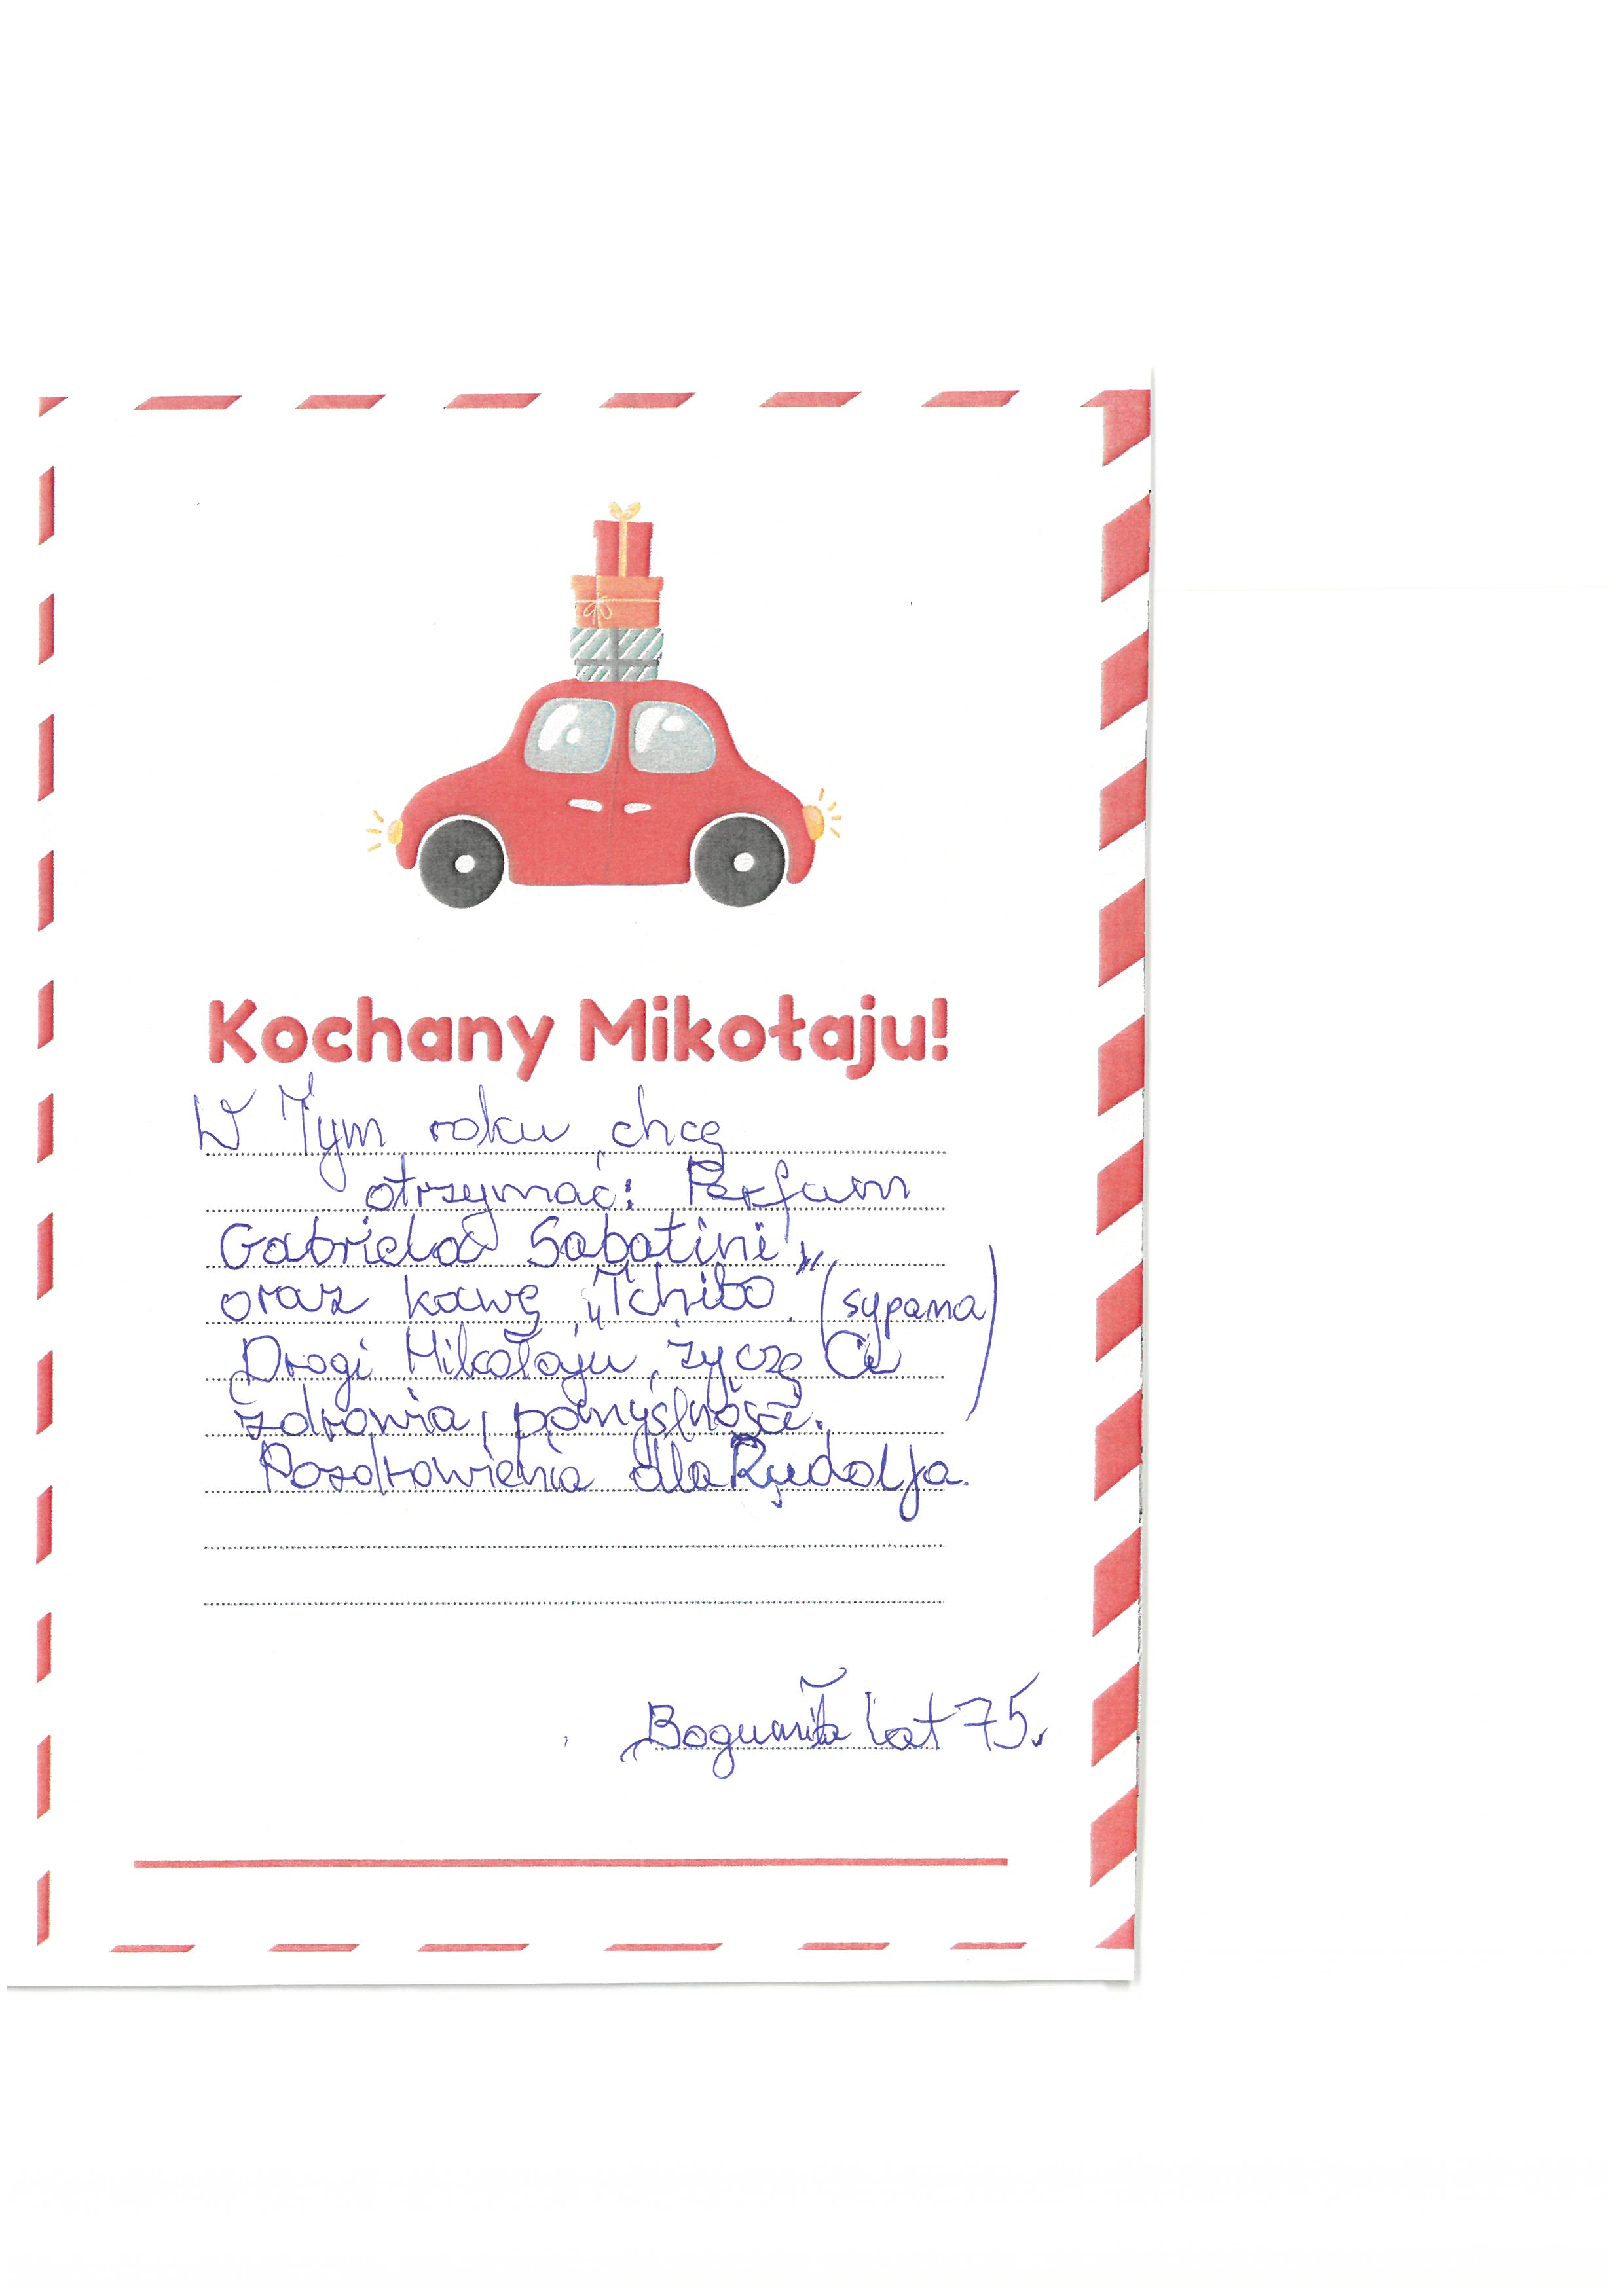 Kochany Mikołaju!
W Tym roku chcę
otrzymać: Perfum
Gabriela Sabatini,
oraz kawę „Tchibo" (sypana)
Drogi Mikołaju, życzę Ci
zdrowia, pomyślności.
Pozdrowienia dla Rudolfa.
Bogumiła lat 75.